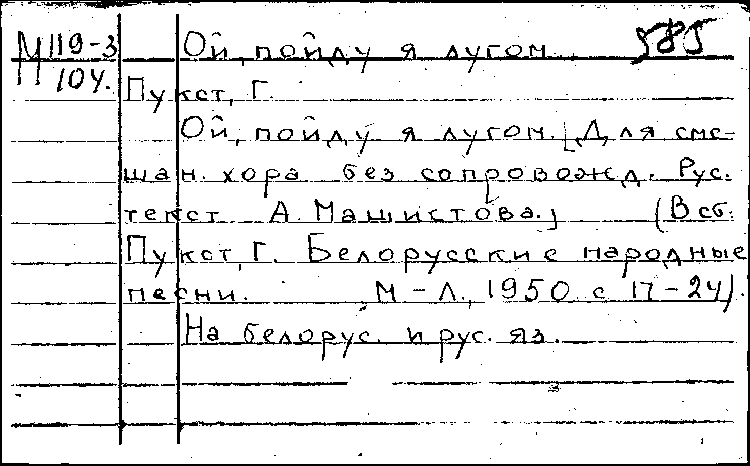 М119-3 Ой, пойду я лугом. 585
104.
Пукст, Г.
Ой, пойду я лугом. [Для сме-
шан. хора без сопровожд. Рус.
текст А. Машистова.] (В сб.
Пукст, Г. Белорусские народные
песни. М-Л., 1950 с 17-24).
На белорус. и рус. яз.